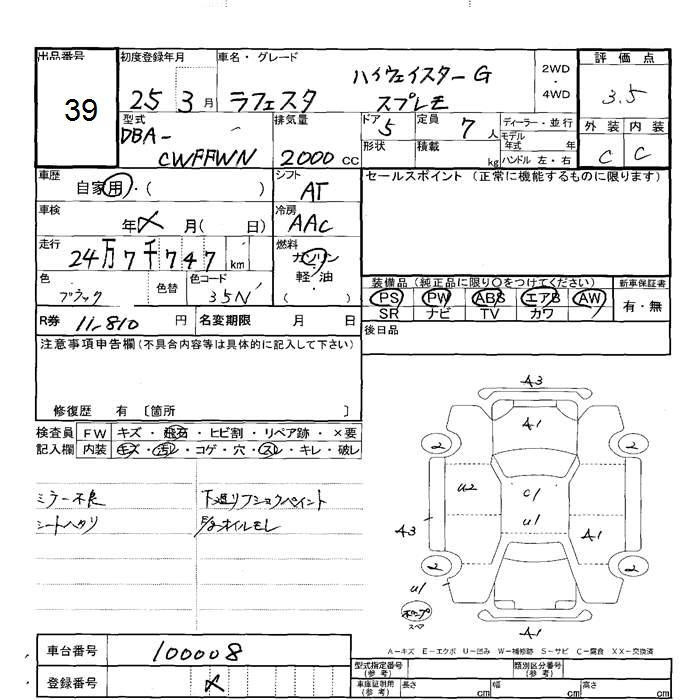 出品番号
39
初度登録年月
25 3 月
車名・グレード
ラフェスタ
ハイウェイスターG
スプレモ
2WD
・
4WD
評価点
3.5
外装 内装
C C
型式
DBA-
CWFFWN
排気量
2000 cc
ドア 5
定員 7 人
形状
積載 kg
ディーラー・並行
モデル年式 年
ハンドル 左・右
車歴
自家用・( )
シフト
AT
車検
年 〆 月( 日)
冷房
AAC
走行
24万7千747 km
燃料
ガソリン
軽・油
( )
色
ブラック
色替
色コード
35N
セールスポイント (正常に機能するものに限ります)
装備品 (純正品に限り○をつけてください)
PS PW ABS エアB AW
SR ナビ TV カワ
新車保証書
有・無
後日品
R券 11,810 円
名変期限 月 日
注意事項申告欄(不具合内容等は具体的に記入して下さい)
修復歴 有 〔箇所 〕
検査員
記入欄
FW キズ・飛石・ヒビ割・リペア跡・×要
内装 キズ・汚レ・コゲ・穴・スレ・キレ・破レ
ミラー不良
シートヘタリ
下廻リフショクペイント
オイルモレ
A3
A1
2 2
U2
C1
U1
A3
A1
2 2
U1
スペア
A1
A-キズ E-エクボ U-凹み W-補修跡 S-サビ C-腐食 XX-交換済
車台番号 100008
登録番号 〆
型式指定番号
(参考)
類別区分番号
(参考)
車庫証明用
(参考)
長さ cm
幅 cm
高さ cm